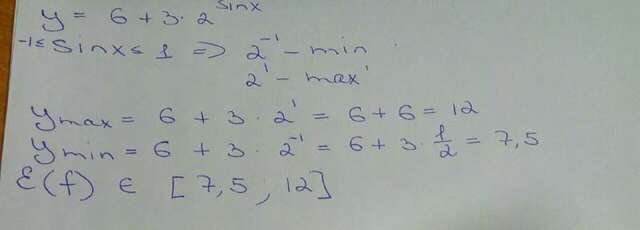 y = 6 + 3 · 2^sinx
-1 ≤ sinx ≤ 1 => 2^-1 - min
2^1 - max
ymax = 6 + 3 · 2^1 = 6 + 6 = 12
ymin = 6 + 3 · 2^-1 = 6 + 3 · 1/2 = 7,5
E(f) ∈ [7,5 , 12]